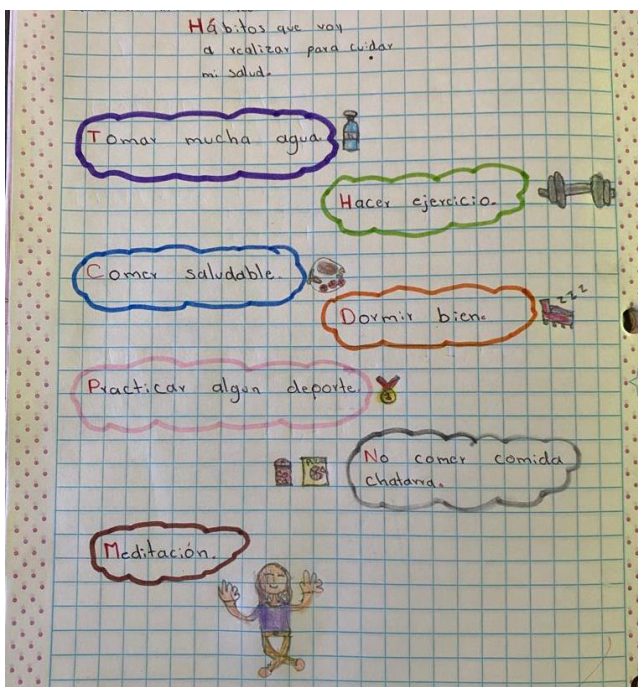 Hábitos que voy
a realizar para cuidar
mi salud.
Tomar mucha agua.
Hacer ejercicio.
Comer saludable.
Dormir bien.
zzz
Practicar algún deporte.
No comer comida
chatarra.
Meditación.